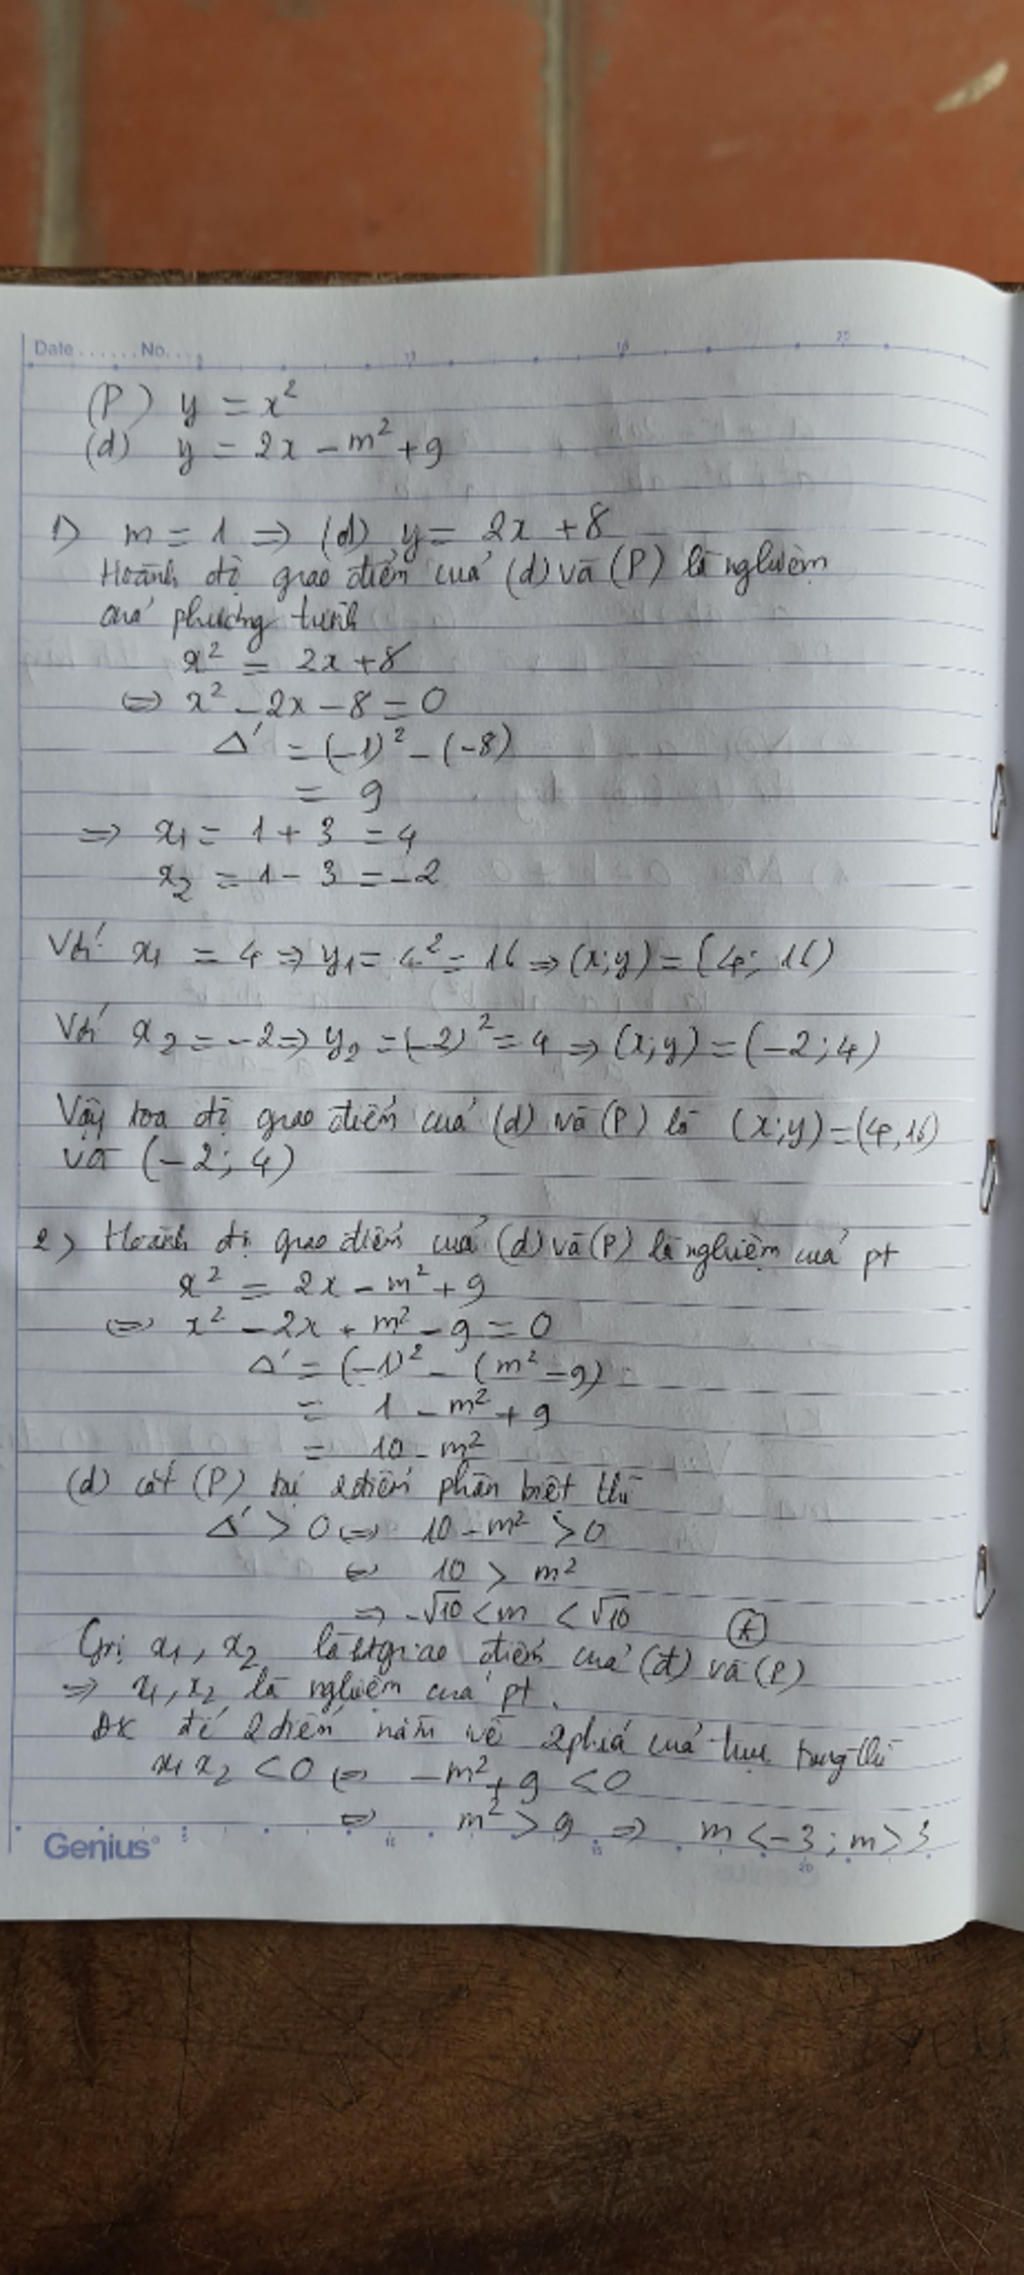 Date ...... No. ...
(P) y = x²
(d) y = 2x - m² + 9
1) m = 1 => (d) y = 2x + 8
Hoành độ giao điểm của (d) và (P) là nghiệm
của phương trình
x² = 2x + 8
<=> x² - 2x - 8 = 0
Δ' = (-1)² - (-8)
= 9
=> x₁ = 1 + 3 = 4
x₂ = 1 - 3 = -2
Với x₁ = 4 => y₁ = 4² = 16 => (x;y) = (4; 16)
Với x₂ = -2 => y₂ = (-2)² = 4 => (x;y) = (-2; 4)
Vậy toạ độ giao điểm của (d) và (P) là (x;y) = (4, 16)
và (-2; 4)
2) Hoành độ giao điểm của (d) và (P) là nghiệm của pt
x² = 2x - m² + 9
<=> x² - 2x + m² - 9 = 0
Δ' = (-1)² - (m² - 9)
= 1 - m² + 9
= 10 - m²
(d) cắt (P) tại 2 điểm phân biệt thì
Δ' > 0 <=> 10 - m² > 0
<=> 10 > m²
=> -√10 < m < √10 (*)
Gọi x₁, x₂ là giao điểm của (d) và (P)
=> x₁, x₂ là nghiệm của pt.
ĐK để 2 điểm nằm về 2 phía của trục tung thì
x₁ x₂ < 0 <=> -m² + 9 < 0
<=> m² > 9 => m < -3; m > 3
Genius